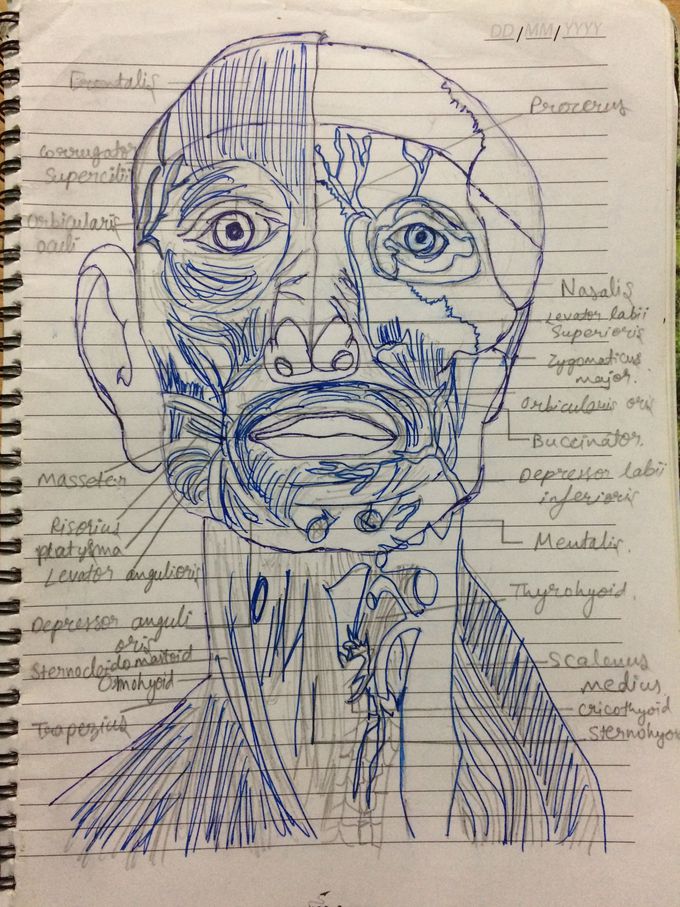 DD/MM/YYYY
Frontalis
Procerus
Corrugator
Supercilii
Orbicularis
oculi
Nasalis
Levator labii
Superioris
Zygomaticus
major.
Orbicularis oris
Buccinator.
Masseter
Depressor labii
inferioris
Risorius
platysma
Levator angulioris
Mentalis.
Thyrohyoid.
Depressor anguli
oris
Sternocleidomastoid
Omohyoid
Scalenus
medius.
cricothyoid
Sternohyo
Trapezius